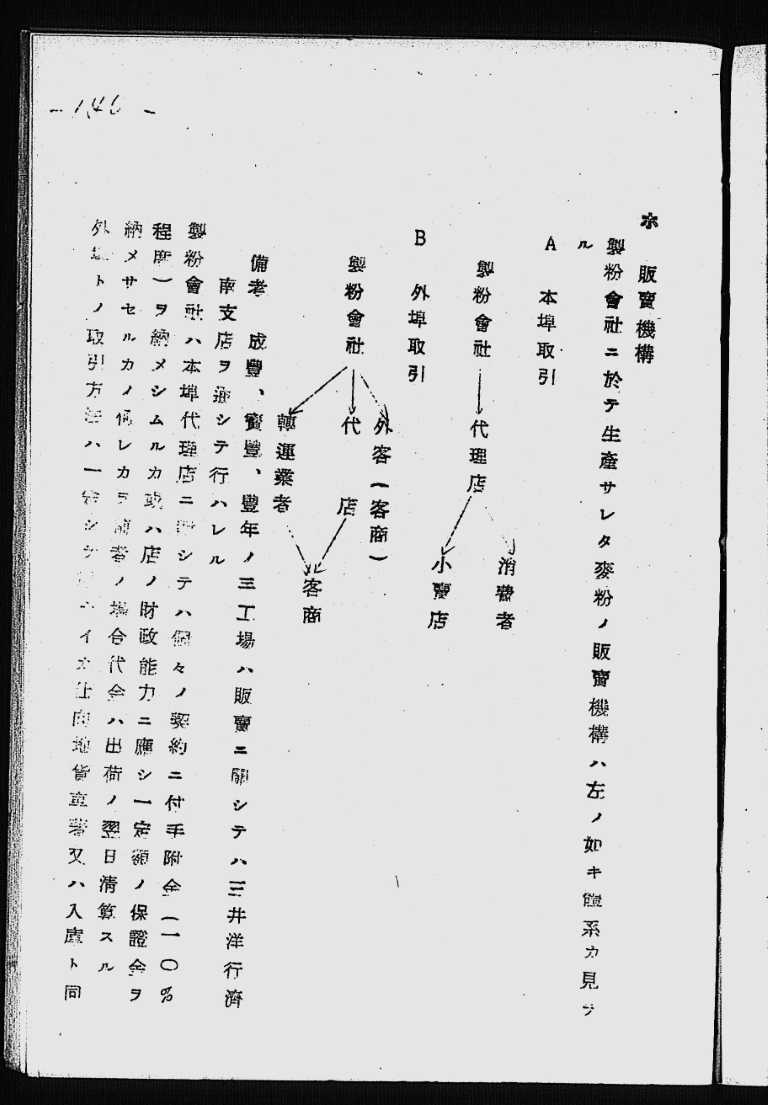 - 146 -
ホ 販賣機構
製粉會社ニ於テ生產サレタ麥粉ノ販賣機構ハ左ノ如キ體系カ見ラ
ル
A 本埠取引
製粉會社
代理店
消費者
小賣店
B 外埠取引
製粉會社
外客(客商)
代 店
轉運業者
客商
備考 成豐、寳豐、豐年ノ三工場ハ販賣ニ關シテハ三井洋行濟
南支店ヲ通シテ行ハレル
製粉會社ハ本埠代理店ニ對シテハ個々ノ契約ニ付手附金(一〇%
程度)ヲ納メシムルカ或ハ店ノ財政能力ニ應シ一定額ノ保證金ヲ
納メサセルカノ何レカヲ 者ノ場合代金ハ出荷ノ翌日淸算スル
外埠トノ取引方法ハ一定シテ ナイカ仕向地貨車 又ハ入庫ト同